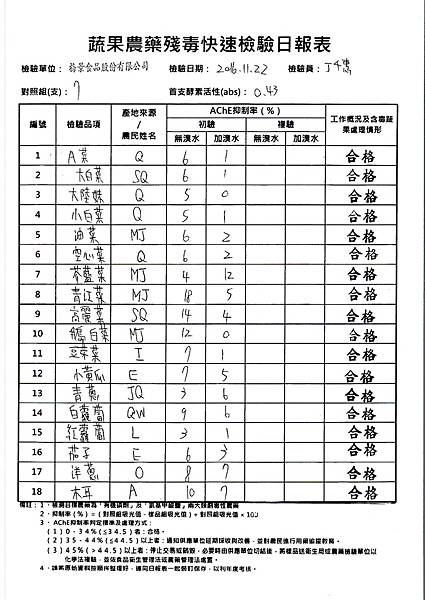 蔬果農藥殘毒快速檢驗日報表
檢驗單位： 裕景食品股份有限公司 檢驗日期： 2016.11.22 檢驗員：
對照組(支)： 7 首支酵素活性(abs)： 0.43
編號 檢驗品項 產地來源/農民姓名 AChE抑制率（%） 工作概況及含毒蔬果處理情形
初驗 複驗
無溴水 加溴水 無溴水 加溴水
1 A菜 Q 6 1 合格
2 大白菜 SQ 6 1 合格
3 大陸妹 Q 5 0 合格
4 小白菜 Q 5 1 合格
5 油菜 MJ 6 2 合格
6 空心菜 Q 6 2 合格
7 芥藍菜 MJ 4 12 合格
8 青江菜 MJ 18 5 合格
9 高麗菜 SQ 14 4 合格
10 鵝白菜 MJ 12 0 合格
11 豆芽菜 I 7 1 合格
12 小黃瓜 E 7 5 合格
13 青蔥 JQ 3 6 合格
14 白蘿蔔 QW 9 6 合格
15 紅蘿蔔 L 3 1 合格
16 茄子 E 6 3 合格
17 洋蔥 O 8 7 合格
18 木耳 A 10 7 合格
備註：1．檢測目標農藥為「有機磷劑」及「氨基甲酸鹽」兩大類劇毒性農藥
2．抑制率（%）=（對照組吸光值－樣品組吸光值）÷對照組吸光值×100
3．AChE抑制率判定標準及處理方式：
(1) 0﹐34%(≦34.5)者：合格。
(2) 35﹐44%(≦44.5)以上者：通知供應單位延期採收與改善，並對農民進行用藥追蹤教育。
(3) 45%(＞44.5)以上者：停止交易或銷毀，必要時由供應單位切結後，將樣品送衛生局或農藥檢驗單位以
化學法複驗，並依食品衛生管理法或農藥管理法處置。
4．請將原始資料按順序整理好，連同日報表一起裝釘保存，以利年度考核。